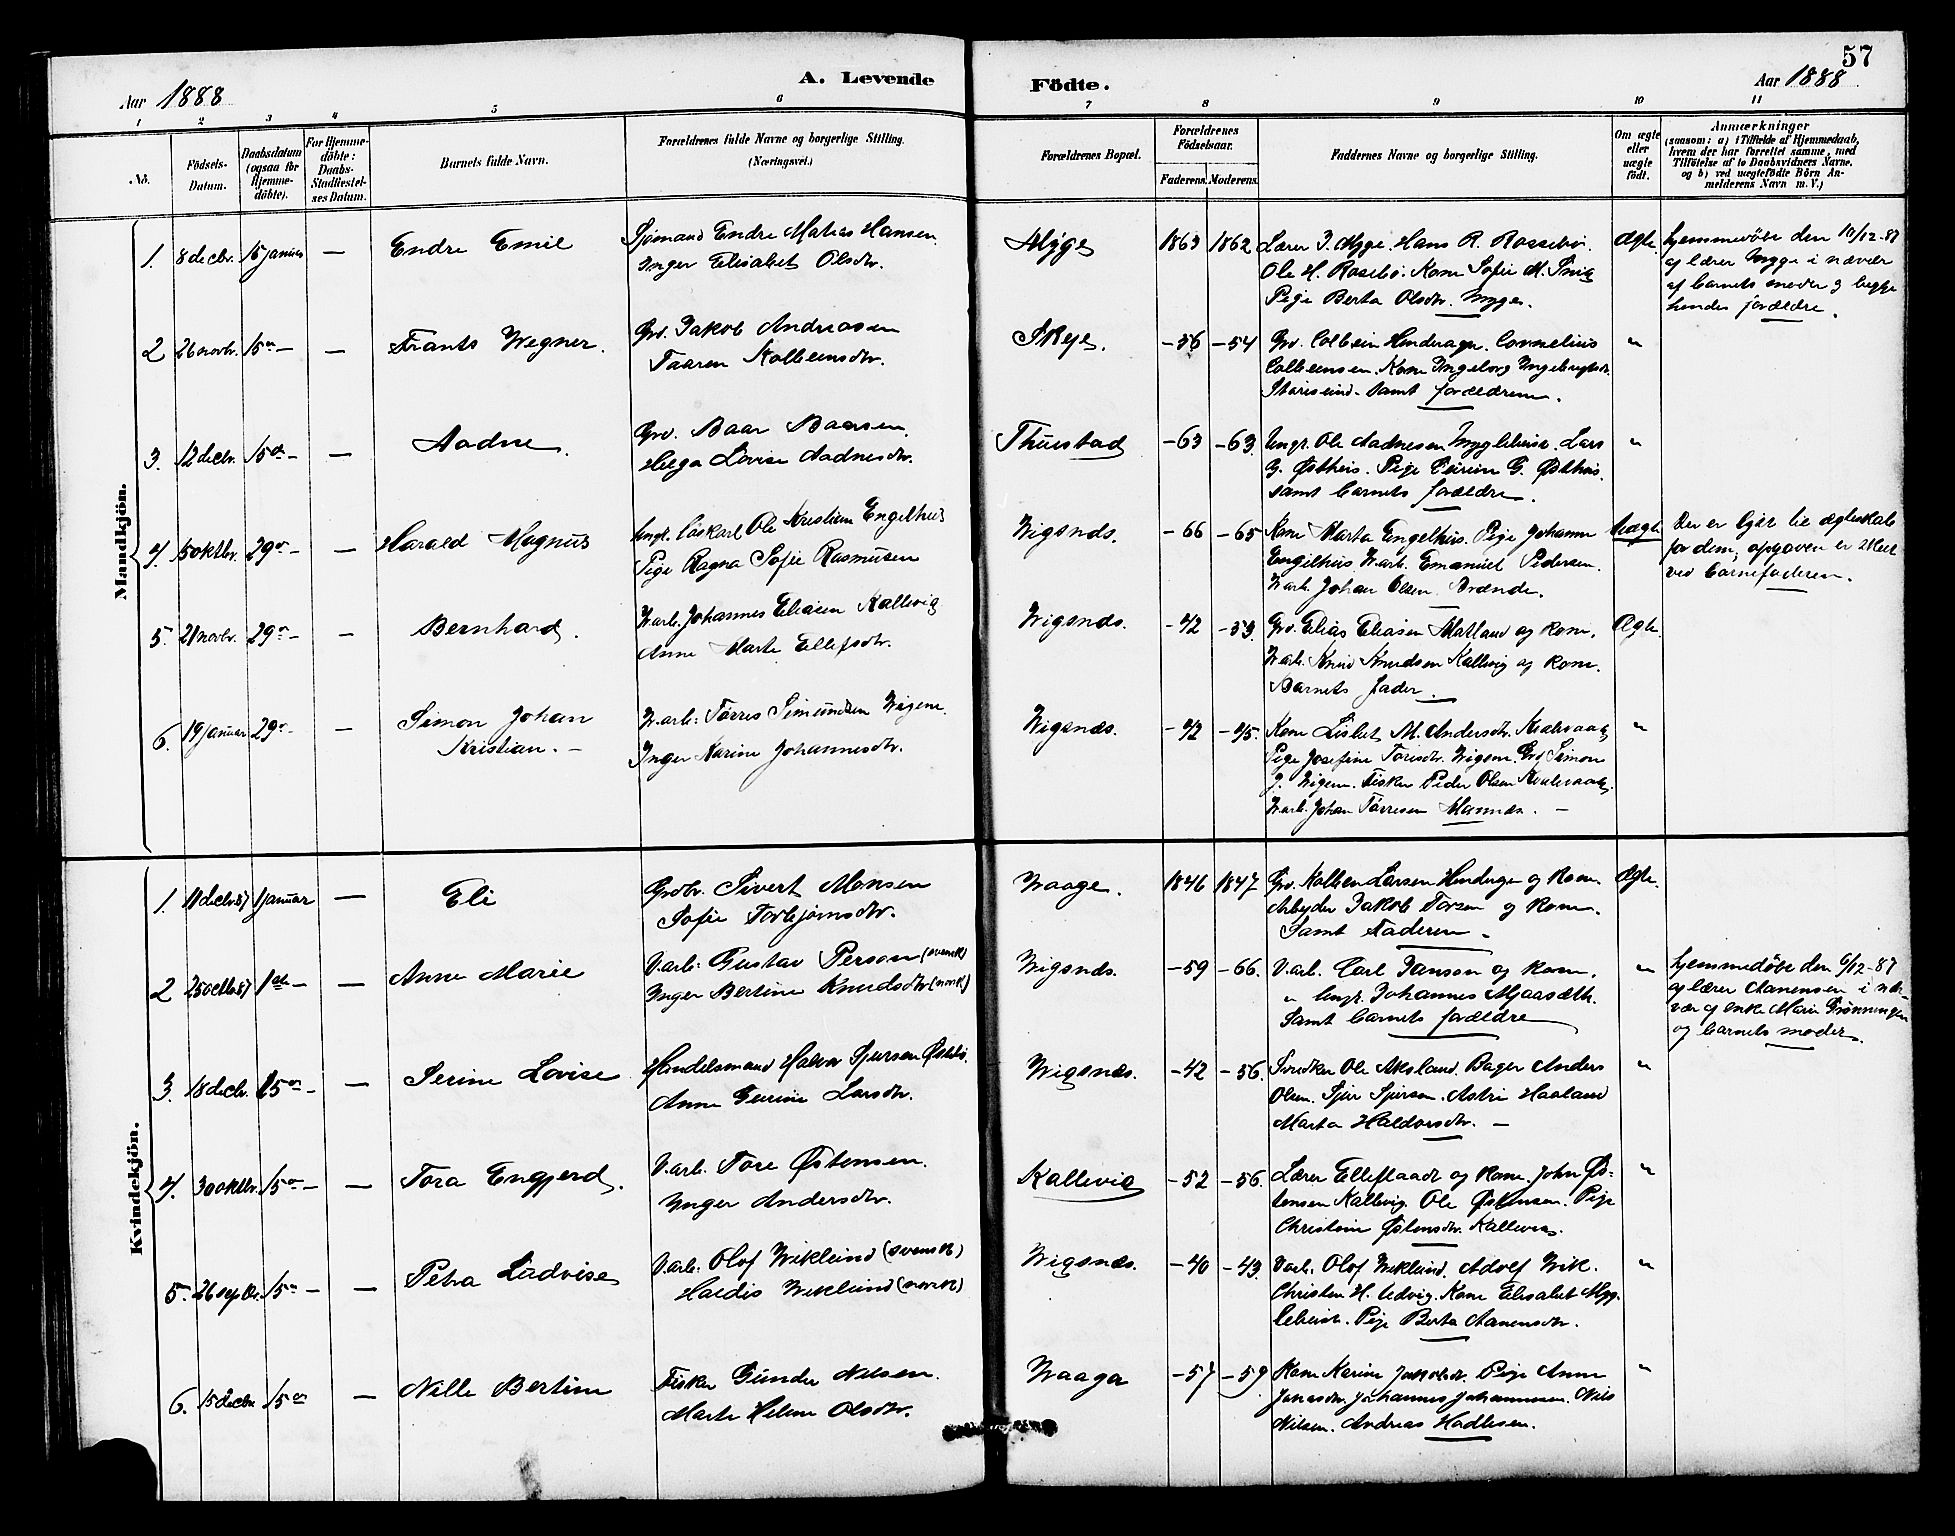 57
A. Levende Födte.
Aar 1888
Aar 1888
1 2 3 4 5 6 7 8 9 10 11
No.
Födsels-Datum.
Daabsdatum (ogsaa for Hjemme-döbte).
For Hjemme-döbte: Daabs-Stadfæstel-ses Datum.
Barnets fulde Navn.
Forældrenes fulde Navne og borgerlige Stilling.
(Næringsvei.)
Forældrenes Bopæl.
Forældrenes Födselsaar.
Faderens. Moderens.
Faddernes Navne og borgerlige Stilling.
Om ægte eller uægte födt.
Anmærkninger
(saasom: a) i Tilfælde af Hjemmedaab,
hvem der har forrettet samme, med
Tilföielse af to Daabsvidners Navne,
og b) ved uægtefödte Börn An-
melderens Navn m. V.)
Mandkjön.
1. 8 decbr. 15 januar — Endre Emil
Sjømand Endre Matias Hansen
Inger Elisabet Olsdtr.
Mÿge 1863 1862
Lærer J. Myge. Hans R. Rossebø.
Ole H. Rosebö. Kone Sofie M.
Pige Berta Olsdtr. Myge.
Ægte
hjemmedøbt den 10/12-87
af lærer Mygge i nævær
af barnets moder og begge
hendes forældre.
2 26 novbr. 15de — — Frants Wegner.
Gbr. Jakob Andreasen
Taaren Kolbeinsdtr.
Skeje. -56 -54
Gbr. Colbein Hinderager. Cornelius
Colbeinsen. Kone Ingeborg Ingebrigtsdtr.
samt forældrene.
"
3. 12 decbr. 15de — — Aadne.
Gbr. Baar Baarsen.
Helga Lovise Aadnesdtr.
Thuestad -63 -63.
Ungk. Ole Aadnesen Myglebust. Lars
G. Østhus. Pige G. Østhus.
samt barnets forældre.
"
4. 5 oktbr. 29de — — Harald Magnus
Ungk. Ole Kristian Engelhus
Pige Ragna Sofie Rasmusen
Wigsnds. -66 -65
Kone Marta Engelhus. Pige Johanne
Engelhus. Varb. Emanuel Pedersen.
Varb. Johan Olsen Brænde.
Uægte
Der er lyst til ægteskab
for dem; opgaven er
ved barnefaderen.
5. 21 novbr. 29de — — Bernhard.
Varb. Johannes Eliasen Kallevig
Anne Marte Ellefsdtr.
Wigsnds. -42 -53.
Gbr. Elias Eliasen Matland og kone.
Varb. Knud Knudsen Kallevig og kone.
Barnets fader.
Ægte.
6. 19 januar 29de — Simon Johan
Kristian. —
Varb: Tørres Simundsen Wigene.
Inger Karine Johannesdtr.
Wigsnæs. -42 -45.
Kone Lisbet M. Andersdtr.
Pige Josefine Toresdtr. Wigene. Gbr Simon
J. Wigene. Fisker Peder Olsen
Varb. Johan Tørresen Mannes. —
"
Kvindekjön.
1. 11 decbr 87 1 januar — Eli
Gbr. Sivert Monsen
Sofie Torbjørnsdtr.
Waage. 1846 1847
Gbr. Kolben Larsen Hinderager og kone.
Arbeyder Jakob Torsen og kone.
Samt Faderen.
Ægte.
2 25 octbr 87 1ste — — Anne Marie
Varb: Gustav Person (svensk)
Inger Bertine Knudsdtr (norsk)
Wigsnds. -59 -66.
Varb. Carl Janson og kone.
" Ungk. Johannes Mjaasæth.
Samt barnets forældre
"
hjemmedøbt den 6/12-87
af lærer Aanensen i nær-
vær af enke Marie Grønningen
og barnets moder.
3. 18 decbr. 15de — — Serine Lovise
Handelsmand Halvor Sjursen Østebö.
Anne Gurine Larsdtr.
Wigsnæs. -42 -56.
Snedker Ole Aksland. Bager Anders
Olsen. Sjur Sjursen. Astri Haaland
Marta Haldorsdtr. —
"
4. 30 oktbr. 15de — — Tora Engjerd.
Varb. Tore Østensen.
Inger Andersdtr.
Kallevig -52 -56.
Lærer Elleflaadt og kone. John Øs-
tensen Kallevig. Ole Østensen. Pige
Christine Østensdtr. Kallevig.
"
5. 26 septbr. 15de — — Petra Ludvise
Varb. Olof Wiklund (svensk)
Haldis Wiklund (norsk)
Wigsnæs. -40 -43.
Varb. Olof Wiklund. Adolf Wik.
Christen H. Ledvig. Kone Elisabet Myg-
lebust. Pige Berta Aanensdtr.
"
6. 15 decbr. 15de — Nille Bertine
Fisker Gunder Nilsen.
Marte Helene Olsdtr.
Waaga -57 -59
Kone Karine Jakobsdtr. Pige Anne
Jonasdtr. Johannes Johannessen. Nils
Nilsen. Andreas Hadlesen.
"